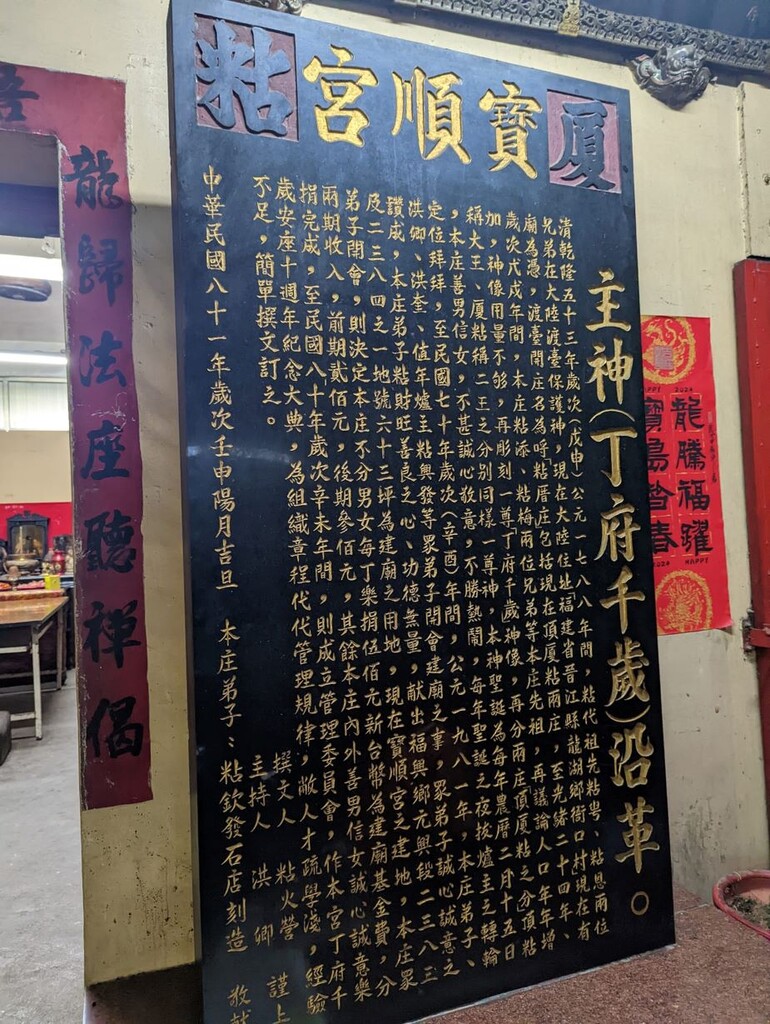 厦寶順宮粘
主神(丁府千歲)沿革。
清乾隆五十三年歲次(戊申)公元一七八八年間,粘代祖先粘粵、粘恩兩位
兄弟在大陸渡臺保護神,現在大陸住址福建省晉江縣龍湖鄉衙口村現在有
廟為憑,渡臺開庄名為呼粘厝庄包括現在頂厦粘兩庄,至光緒二十四年、
歲次戊戌年間,本庄粘添、粘梅兩位兄弟等本庄先祖,再議論人口年年增
加,神像用量不够,再彫刻一尊丁府千歲神像,再分兩庄頂厦粘之分頂粘
稱大王、厦粘稱二王之分別同樣一尊神,本神聖誕為每年農曆二月十五日
,本庄善男信女,不甚誠心敬意,不勝熱鬧,每年聖誕之夜拔爐主之轉輪
定位拜拜,至民國七十年歲次(辛酉)年間,公元一九八一年,本庄弟子、
洪卿、洪奎、值年爐主粘興發等眾弟子開會建廟之事,眾弟子誠心誠意之
讚成,本庄弟子粘財旺善良之心、功德無量,献出福興鄉元興段二三八三
及二三八四之一地號六十三坪為建廟之用地,現在寶順宮之建地,本庄眾
弟子開會,則決定本庄不分男女每丁樂捐伍佰元新台幣為建廟基金費,分
兩期收入,前期貳佰元,後期參佰元,其餘本庄內外善男信女誠心誠意樂
捐完成,至民國八十年歲次辛未年間,則成立管理委員會,作本宮丁府千
歲安座十週年紀念大典,為組織章程代代管理規律,敝人才疏學淺,經驗
不足,簡單撰文訂之。
撰文人 粘火營 謹上
主持人 洪卿
中華民國八十一年歲次壬申陽月吉旦 本庄弟子:粘欽發石店刻造 敬献
龍歸法座聽禪偈
龍騰福躍
寶島皆春
HAPPY 2024
HAPPY